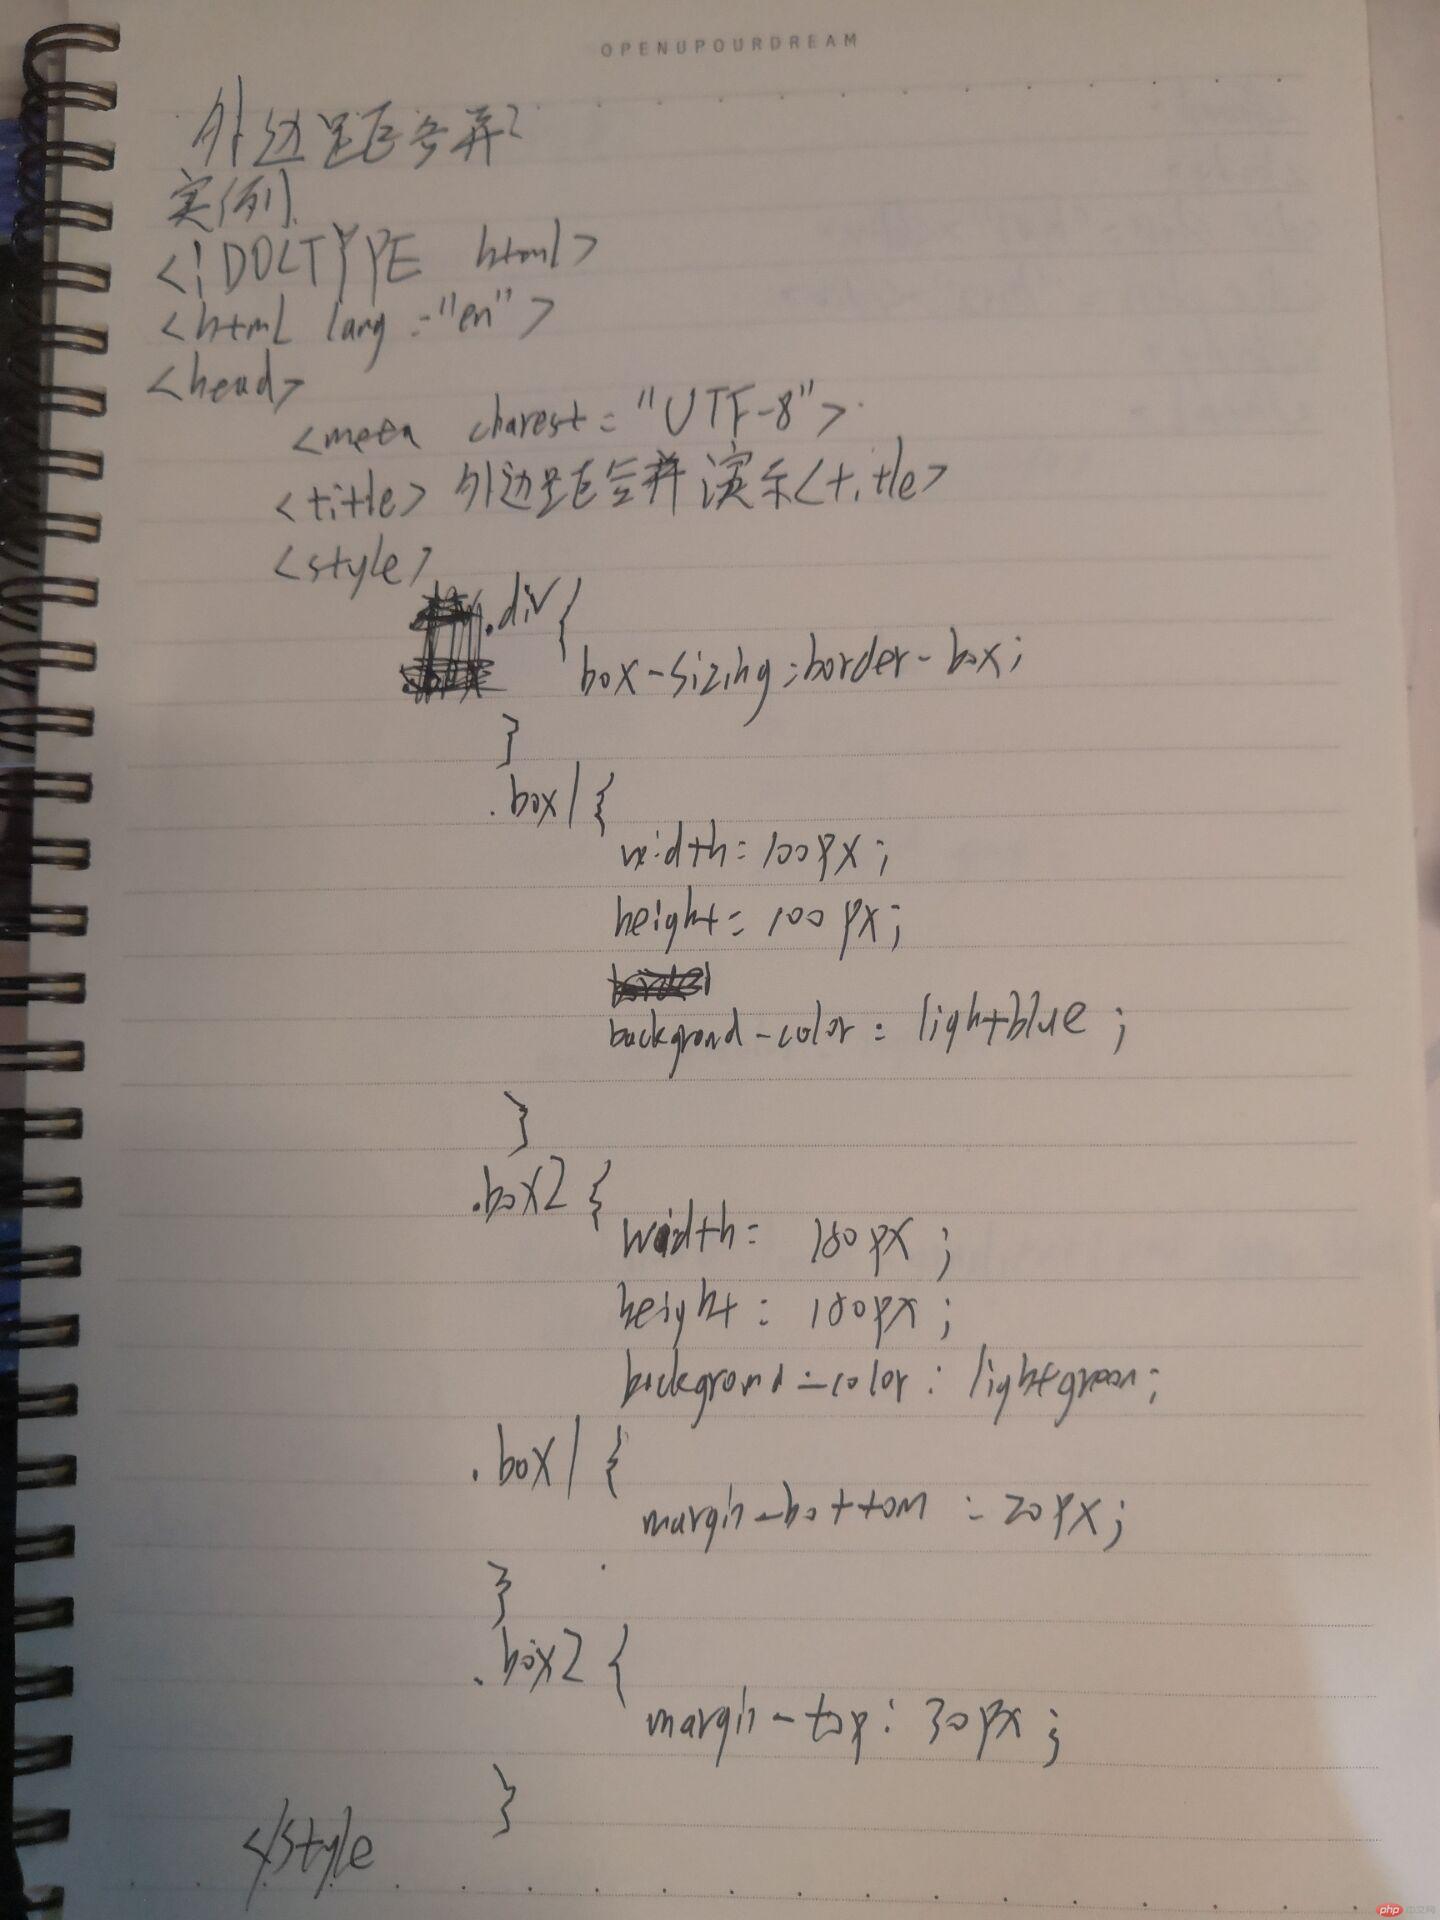 OPENUPOURDREAM
外边距合并
实例
<!DOCTYPE html>
<html lang="en">
<head>
<meta charest="UTF-8">
<title>外边距合并演示<title>
<style>
.div{
box-sizing:border-box;
}
.box1{
width:100px;
height:100px;
backgrond-color:lightblue;
}
.box2{
width:180px;
height:180px;
background-color:lightgreen;
.box1{
margin-bottom:20px;
}
.box2{
margin-top:30px;
}
</style
php中文网